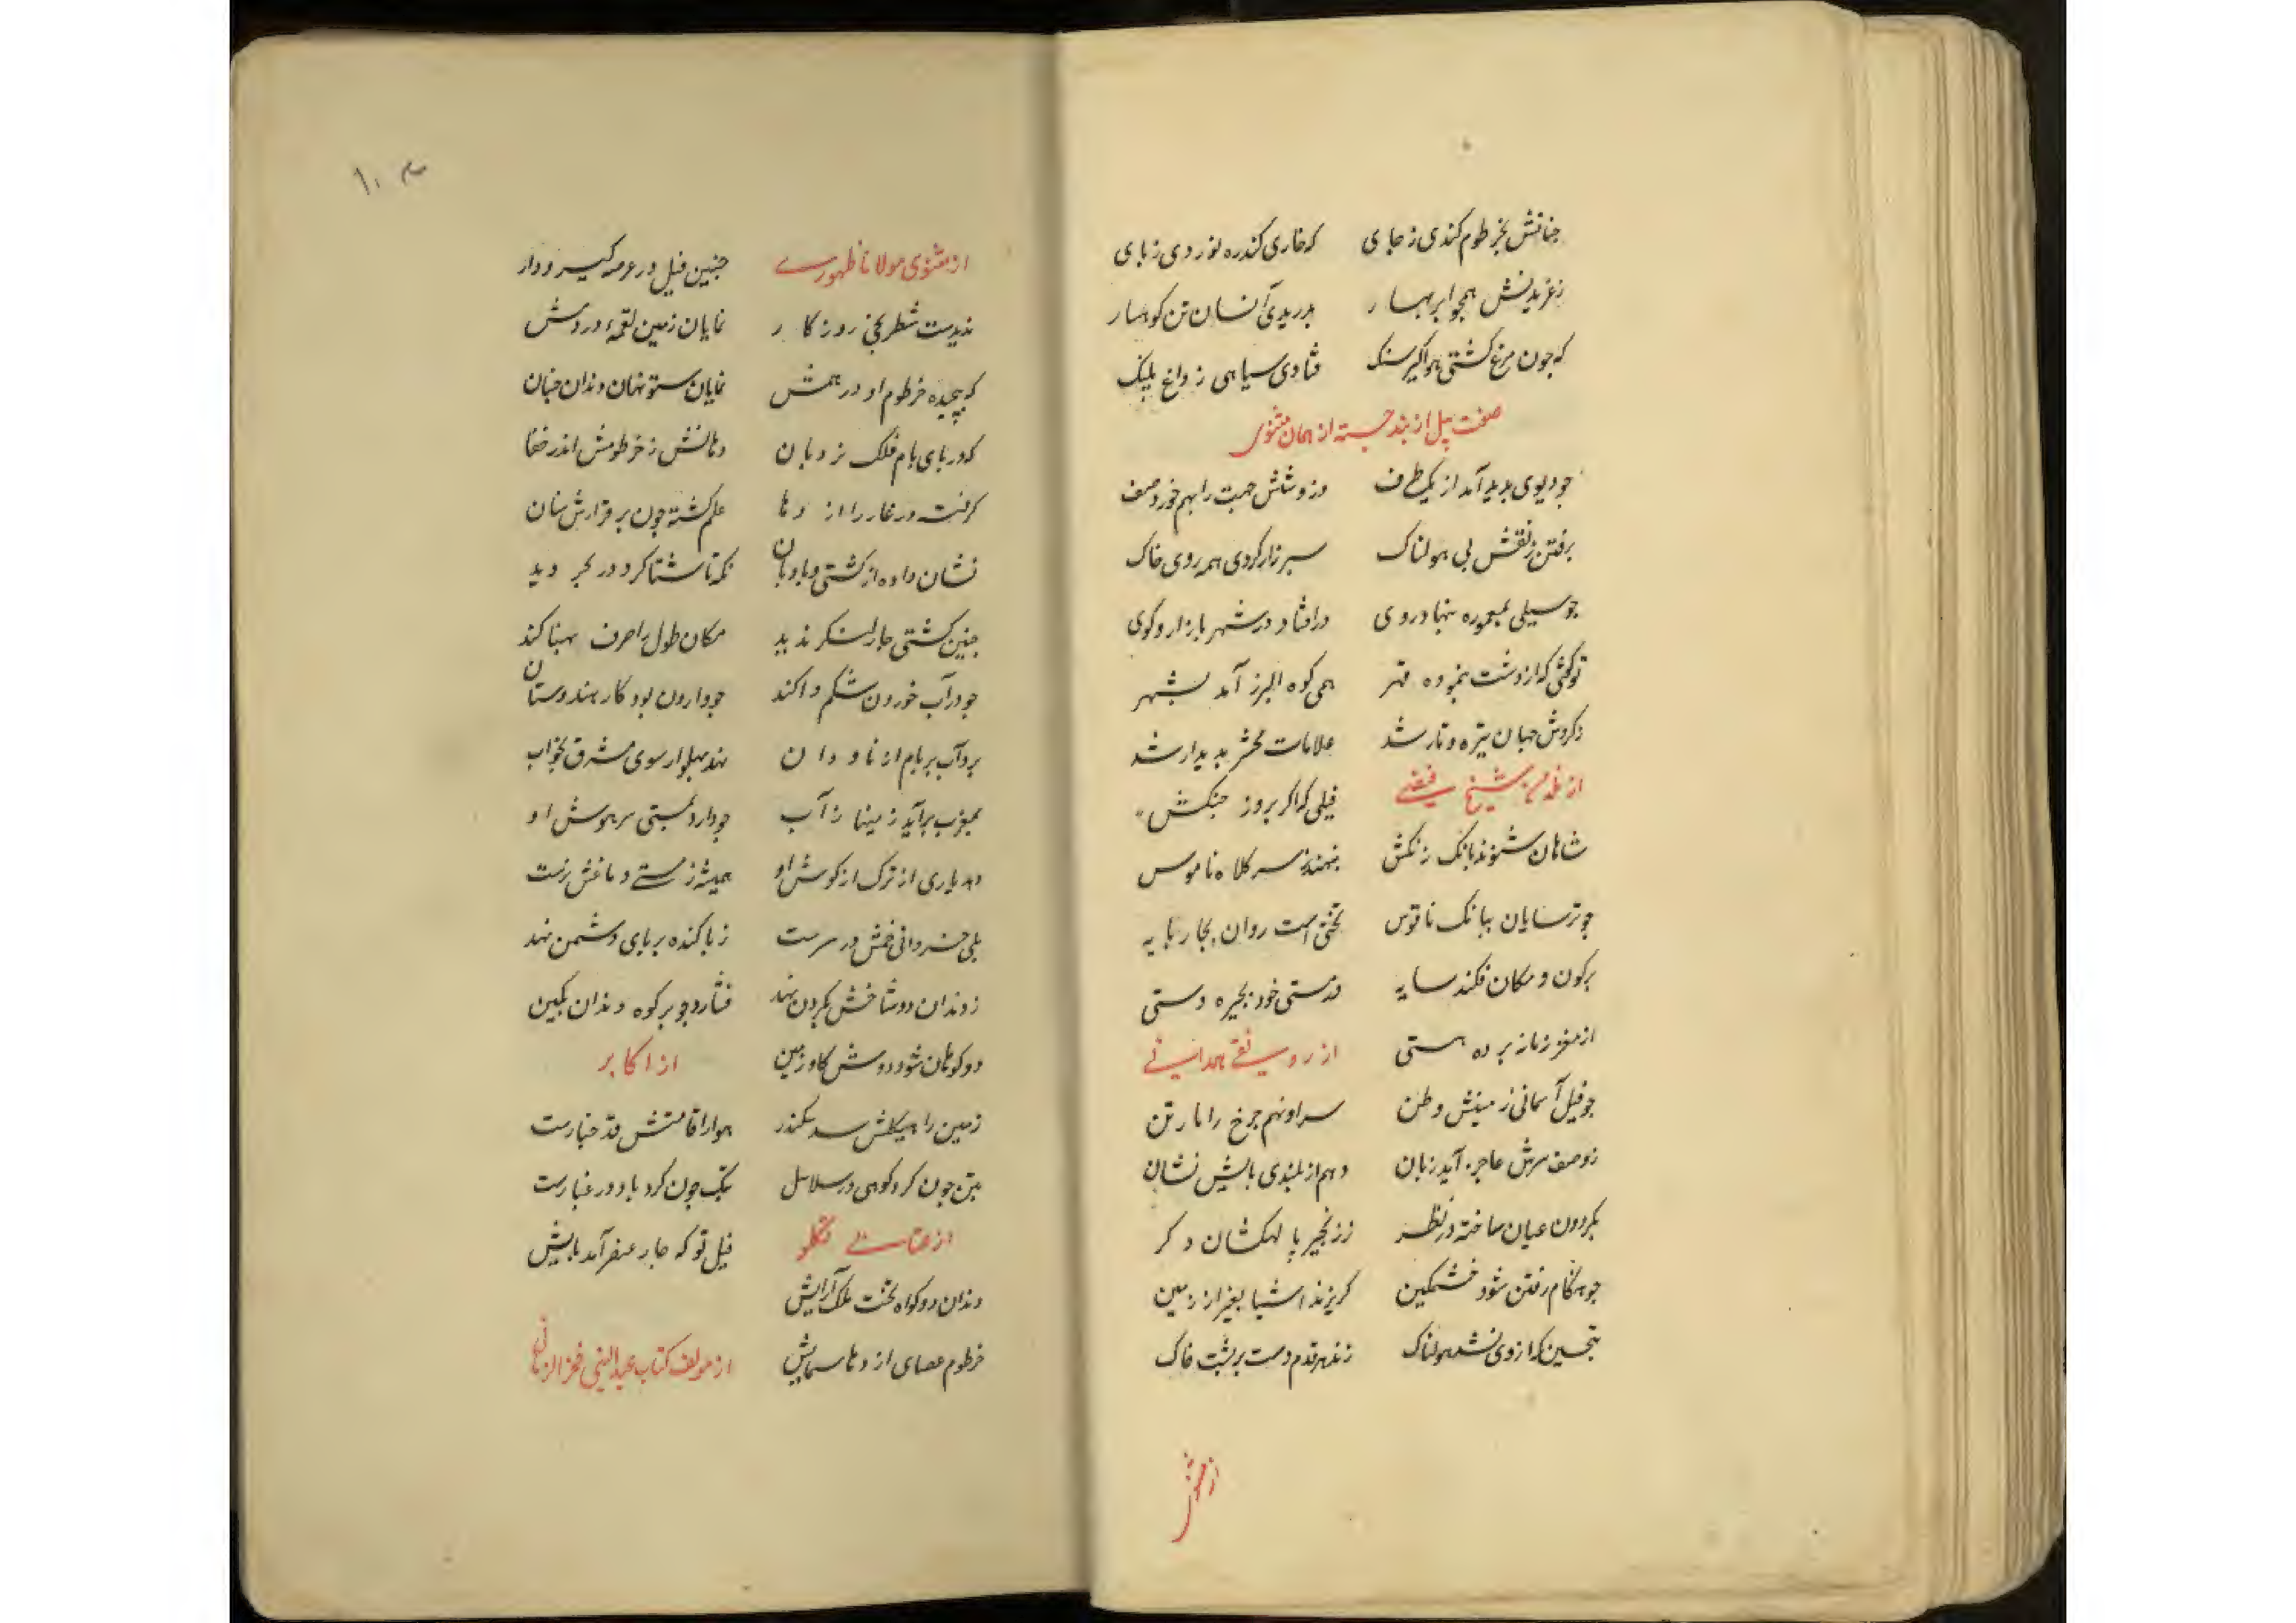 چنانش بخرطوم کندی ز جای که خاری کند ره نوردی ز پای
ز غریدنش همچو ابر بهار بدریدی آنسان تن کوهسار
که چون مرغ کشتی هواگیر سنگ فتادی سیاهی ز داغ پلنگ
صفت پیل از بند جسته از همان مثنوی
چو دیوی پدید آمد از یک طرف وزو شش جهت را بهم خورد صف
برفتن ز نقش پی هولناک سپرزار کردی همه روی خاک
چو سیلی بمعموره بنهاد روی درافتاد در شهر بازار و کوی
تو گفتی که از دشت بنموده قهر همی کوه البرز آمد بشهر
ز گردش جهان تیره و تار شد علامات محشر پدیدار شد
از شیخ فیضی فیلی که اگر بروز جنگش
شاهان شنوند بانگ زنگش بنهند ز سر کلاه ناموس
چو ترسایان ببانگ ناقوس تختی است روان بچار پایه
بر کون و مکان فکند سایه در مستی خود بچیره دستی
از مغز زمانه برده هستی از رونقی همدانی
چو فیل آسمانی زمینش وطن سر او نهم چرخ را بار تن
ز وصف سرش عاجز آید زبان دهم از بلندی پایش نشان
بگردون عیان ساخته در نظر ز زنجیر پا کهکشان دگر
چو هنگام رفتن شود خشمگین گریزند اشیا بغیر از زمین
که از وی شد هولناک زند هر قدم دست بر پشت خاک
از مثنوی
۱۰۴
از مثنوی مولانا ظهوری چنین فیل در عرصه گیر و دار
ندیدست شطرنجی روزگار نمایان زمین لقمهٔ در دمش
که پیچیده خرطوم او در همش نمایان ستونهای دندان چنان
که در پای بام فلک نردبان دهانش ز خرطومش اندر خفا
گرفته در غار را اژدها علم گشته چون بر فرازش سنان
نشان داده از کشتی و بادبان که تا آشنا کرد در بحر دید
چنین کشتی چار لنگر ندید مکان طول را صرف پهنا کند
چو در آب خوردن شکم وا کند چو وارون بود کار هندوستان
برد آب بر بام از ناودان نهد پهلو ار سوی مشرق بخواب
بمغرب برآید ز مینا ز آب چو دارد بمستی سر هوش او
دهد یاری از ترک از گوش او همیشه ز مستی دماغش ترست
بلی خسروانی خمش در سرست ز پا کنده بر پای دشمن نهد
ز دندان دوشاخش بگردن نهد فشارد چو بر کوه دندان بکین
دو کوهان شود دوش گاو زمین از اکابر
زمین را هیکلش سد سکندر هوا را قامتش قد چنارست
بتن چون گرد کوهی در سلاسل بتگ چون گردباد در غبارست
از عتابی تکلو فیل تو که چار عنصر آمد پایش
دندان دو گواه تخت ملک آرایش
خرطوم عصای اژدها سیمایش از مولف کتاب عبدالنبی فخرالزمانی